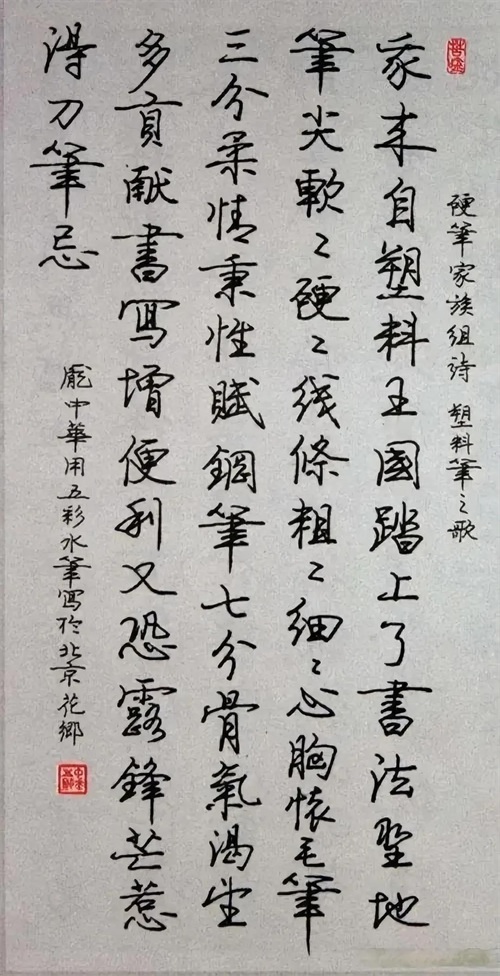 硬筆家族組詩 塑料筆之歌
我来自塑料王國踏上了書法聖地
筆尖軟〻硬〻线條粗〻細〻心胸懷毛筆
三分柔情秉性賦鋼筆七分骨氣渴望
多貢献書寫增便利又恐露鋒芒惹
得刀筆忌
龐中華用五彩水筆寫於北京花鄉